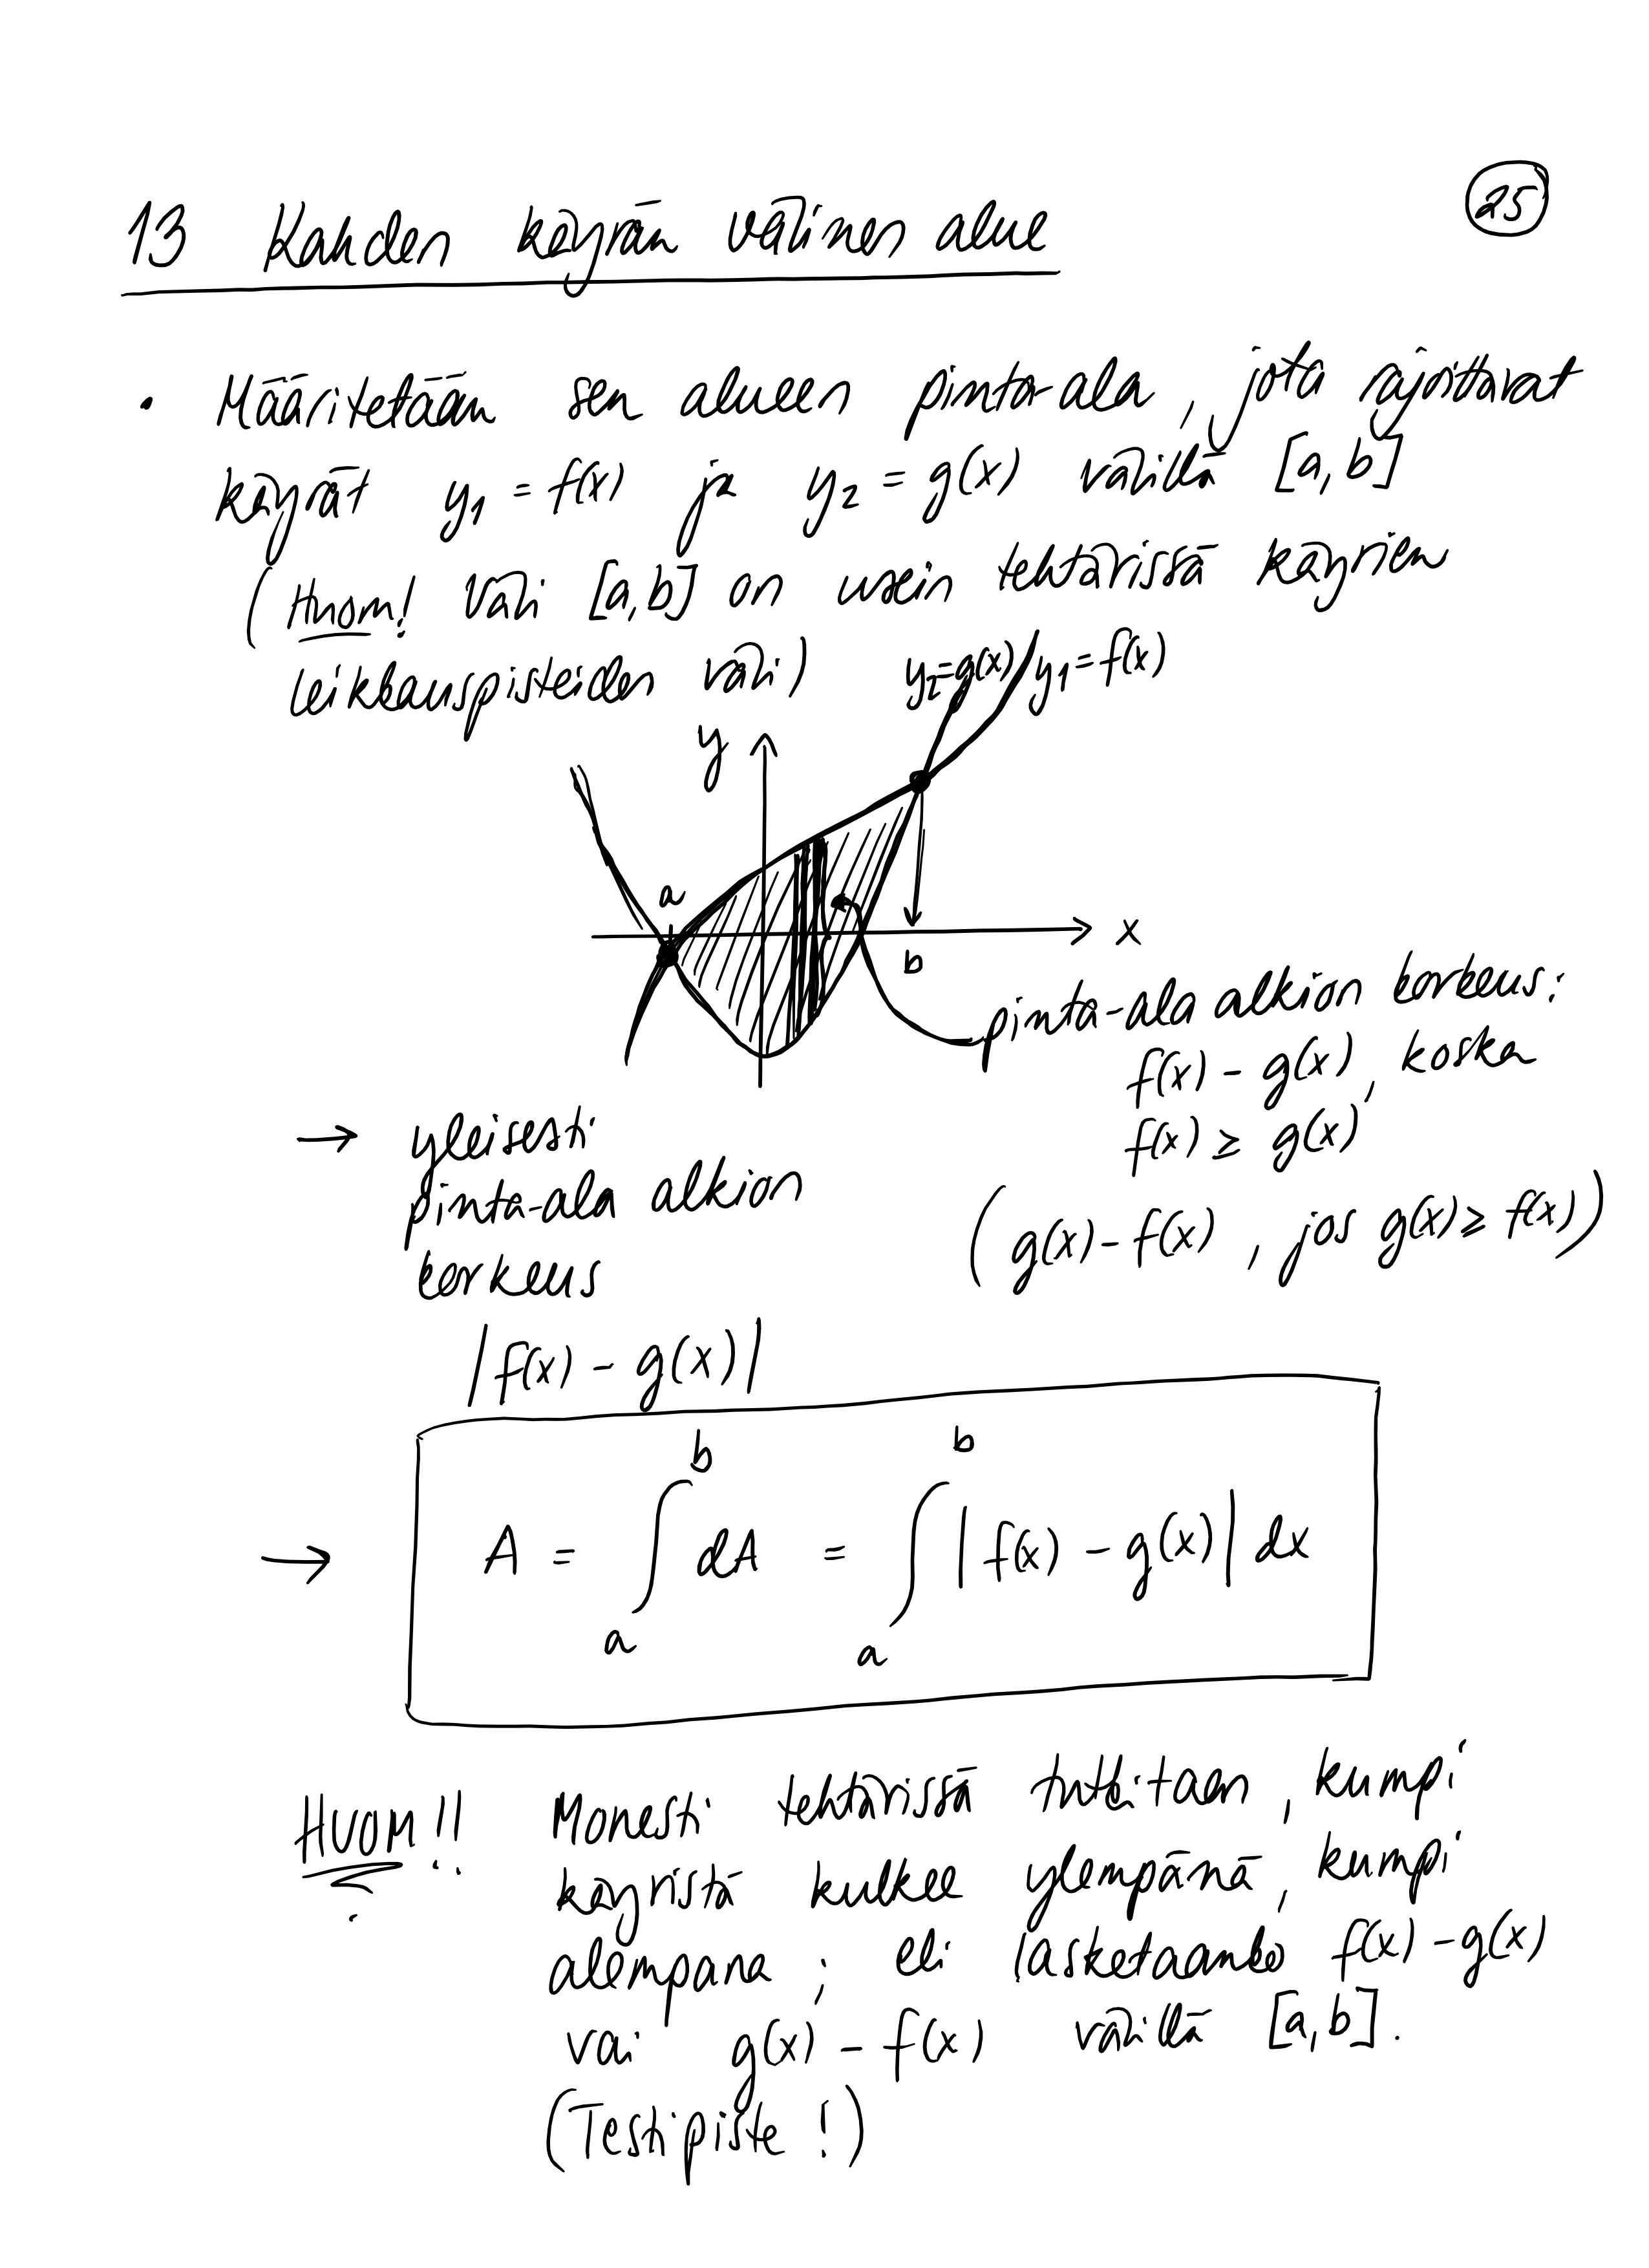 25
13 Kahden käyrän välinen alue
• Määritetään sen alueen pinta-ala, jota rajoittavat
käyrät y₁ = f(x) ja y₂ = g(x) välillä [a, b]
(Huom! Väli [a, b] on usein tehtävissä käyrien
leikkauspisteiden väli)
y₂=g(x) y₁=f(x)
y
a
x
b
pinta-ala alkion korkeus:
f(x) - g(x), koska
f(x) ≥ g(x)
(g(x) - f(x), jos g(x) ≥ f(x))
→ yleisesti
pinta-ala alkion
korkeus
|f(x) - g(x)|
→ A = ∫ₐᵇ dA = ∫ₐᵇ |f(x) - g(x)| dx
HUOM!! Monesti tehtävissä tutkitaan, kumpi
käyristä kulkee ylempänä, kumpi
alempana; eli lasketaanko f(x) - g(x)
vai g(x) - f(x) välillä [a, b].
(Testipiste!)